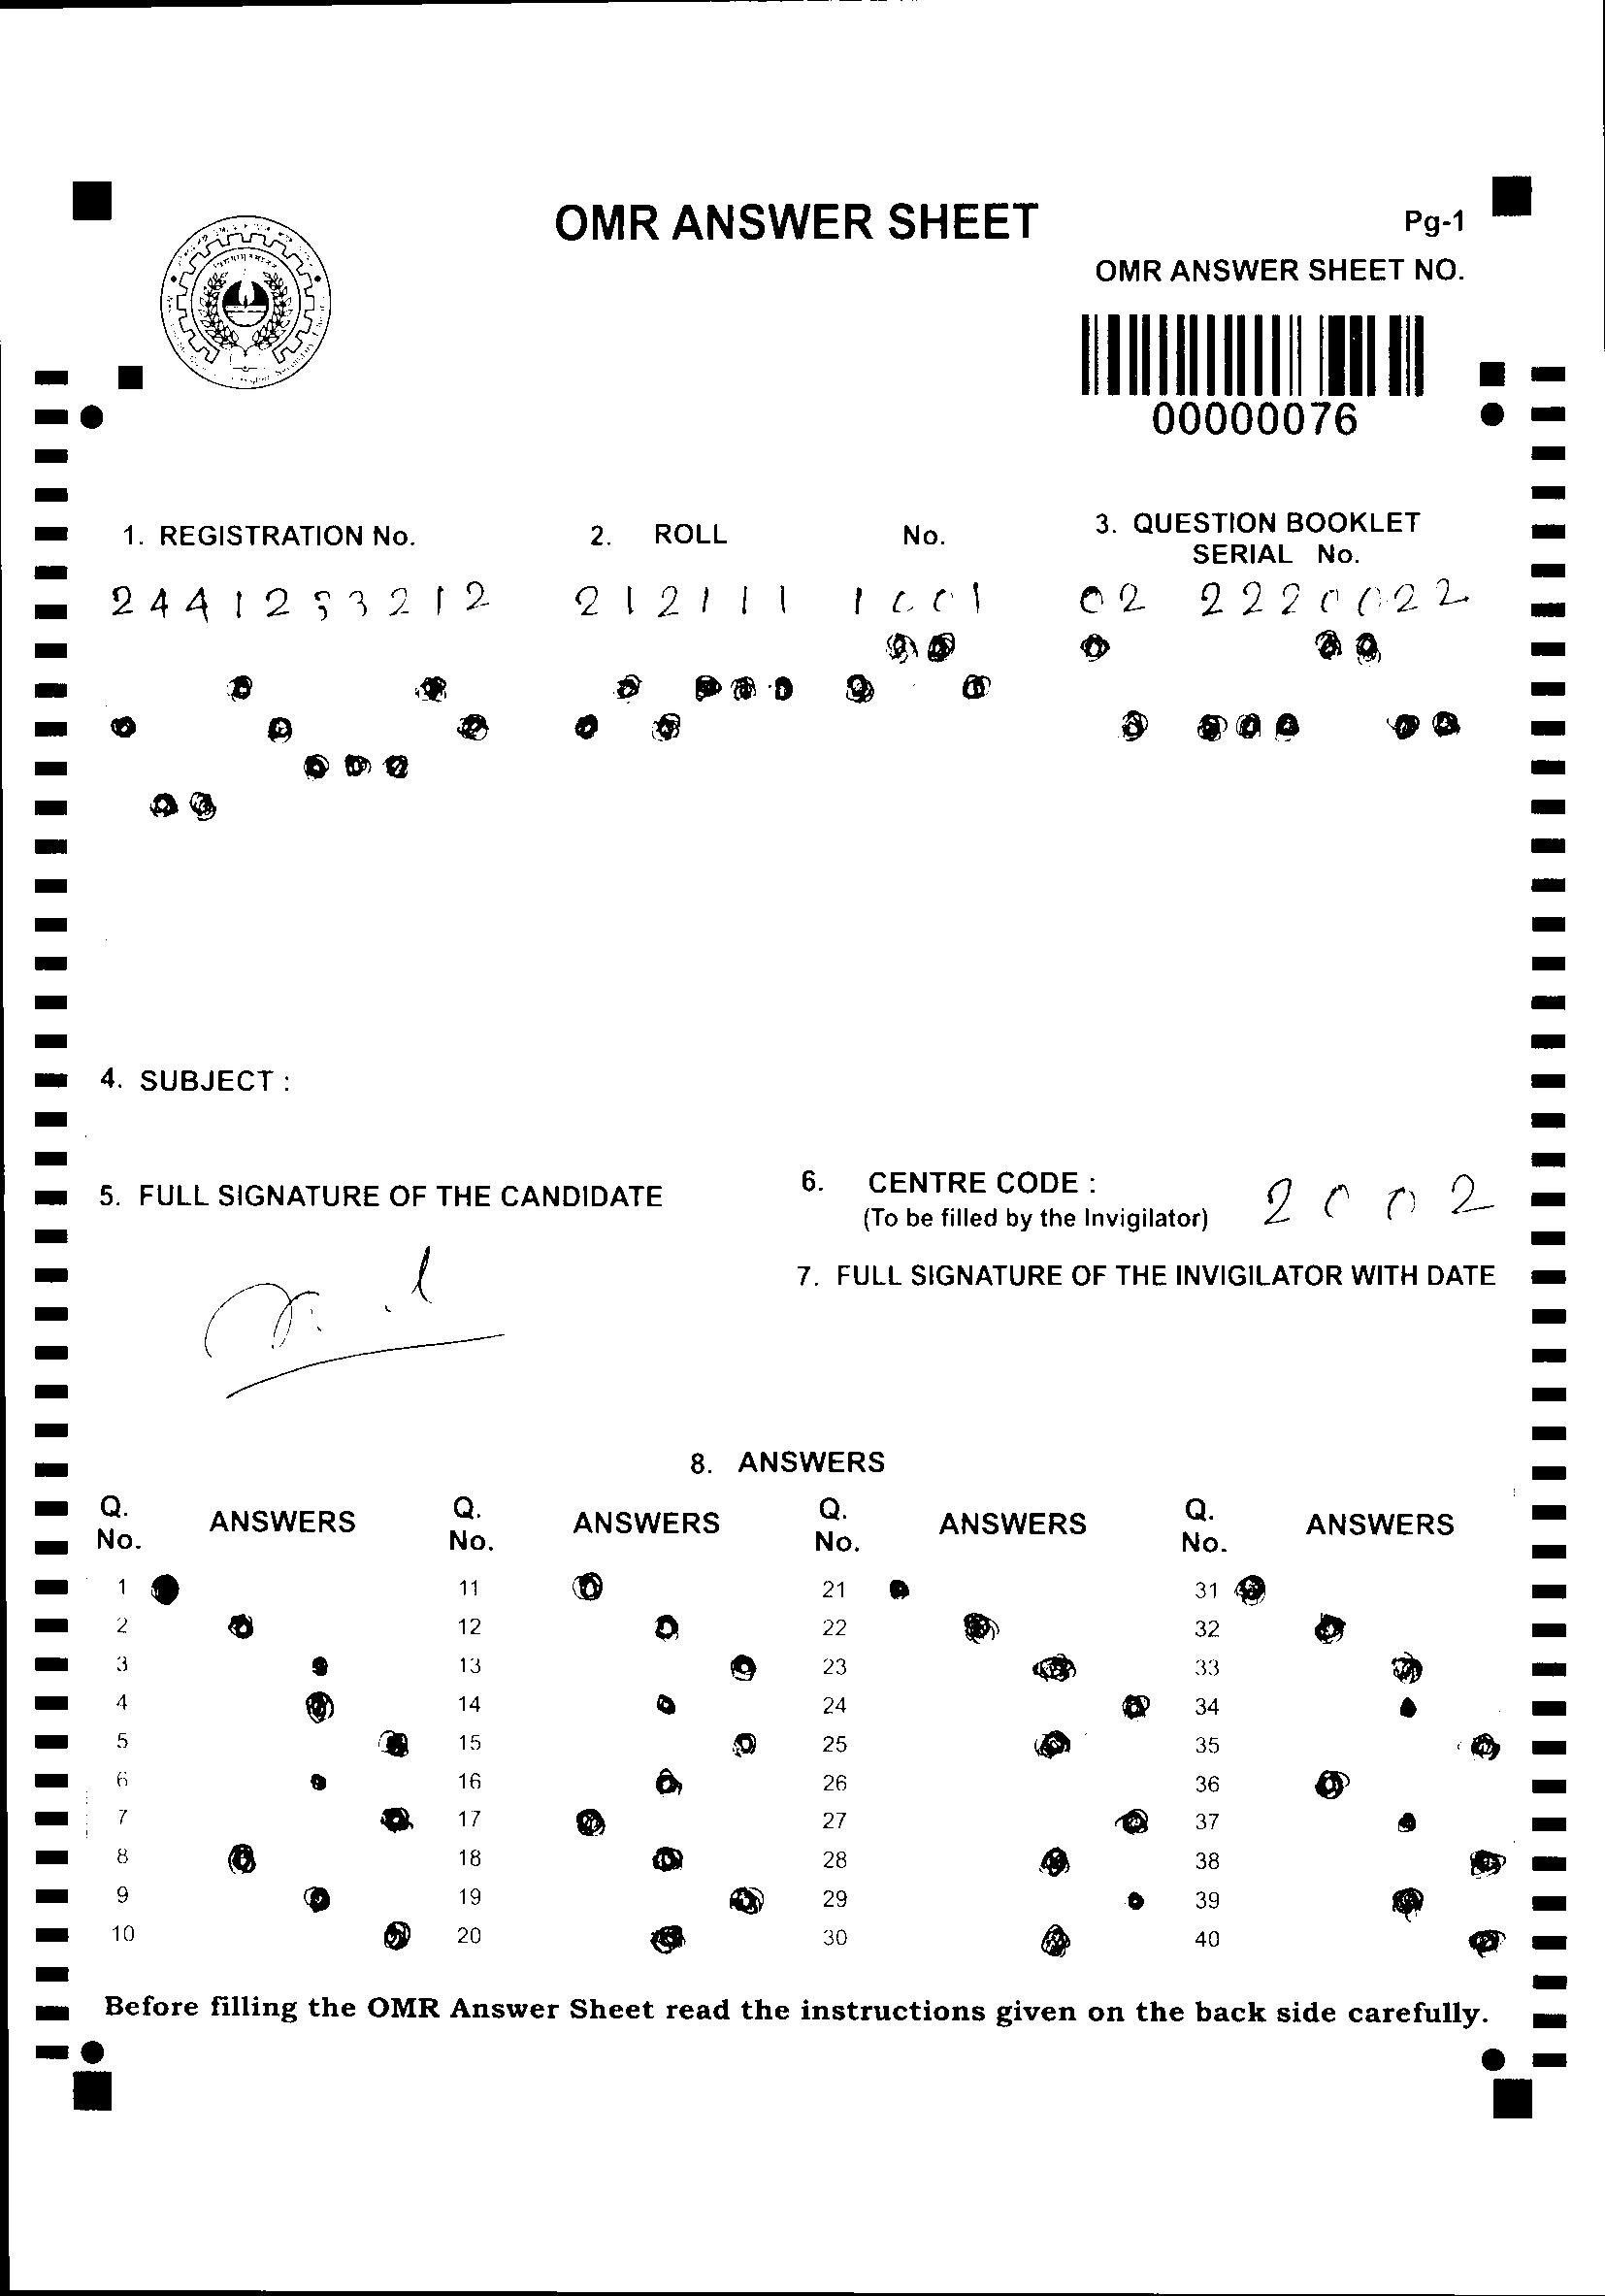 OMR ANSWER SHEET
Pg-1
OMR ANSWER SHEET NO.
00000076
1. REGISTRATION No.
2. ROLL No.
3. QUESTION BOOKLET
SERIAL No.
2441253212
212111 1001
02 2220022
4. SUBJECT :
5. FULL SIGNATURE OF THE CANDIDATE
6. CENTRE CODE :
(To be filled by the Invigilator)
2002
7. FULL SIGNATURE OF THE INVIGILATOR WITH DATE
8. ANSWERS
Q. No. ANSWERS Q. No. ANSWERS Q. No. ANSWERS Q. No. ANSWERS
1 11 21 31
2 12 22 32
3 13 23 33
4 14 24 34
5 15 25 35
6 16 26 36
7 17 27 37
8 18 28 38
9 19 29 39
10 20 30 40
Before filling the OMR Answer Sheet read the instructions given on the back side carefully.